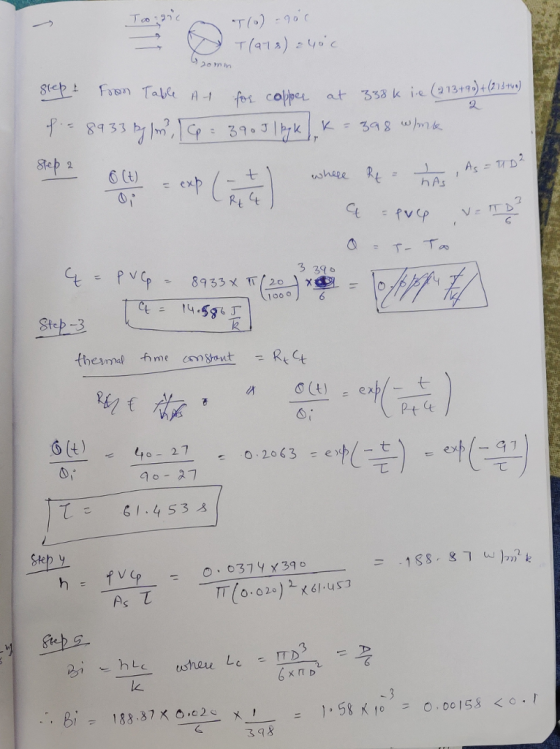 → T∞ = 27°C T(0) = 90°C
T(97s) = 40°C
20mm
Step 1 From Table A-1 for copper at 338k i.e (273+90)+(273+40)/2
ρ = 8933 kg/m³, Cp = 390 J/kgk, K = 398 w/mk
Step 2
θ(t)/θi = exp(-t/Rt Ct) where Rt = 1/hAs, As = πD²
Ct = ρVCp, V = πD³/6
θ = T - T∞
Ct = ρVCp = 8933 × π(20/1000)³ × 390/6 =
Ct = 14.586 J/k
Step-3
thermal time constant = Rt Ct
θ(t)/θi = exp(-t/Rt Ct)
θ(t)/θi = 40-27/90-27 = 0.2063 = exp(-t/τ) = exp(-97/τ)
τ = 61.453 s
Step 4
h = ρVCp/As τ = 0.0374×390/π(0.020)²×61.453 = 188.87 w/m²k
Step 5
Bi = hLc/k where Lc = πD³/6×πD² = D/6
∴ Bi = 188.87 × 0.020/6 × 1/398 = 1.58 × 10⁻³ = 0.00158 < 0.1